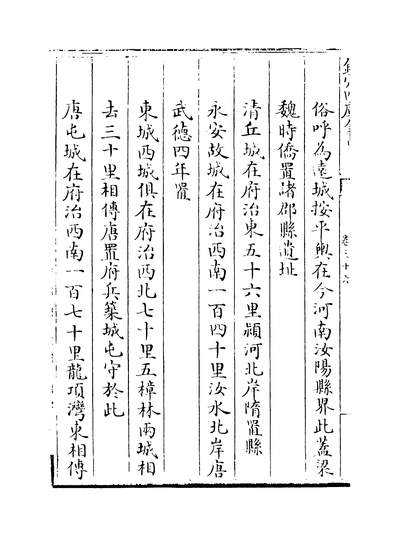 俗呼為遠城按平輿在今河南汝陽縣界此蓋梁
魏時僑置諸郡縣遺址
清丘城在府治東五十六里潁河北岸隋置縣
永安故城在府治西南一百四十里汝水北岸唐
武德四年置
東城西城俱在府治西北七十里五樟林兩城相
去三十里相傳唐置府兵築城屯守於此
唐屯城在府治西南一百七十里龍項灣東相傳
欽定四庫全書
卷三十六